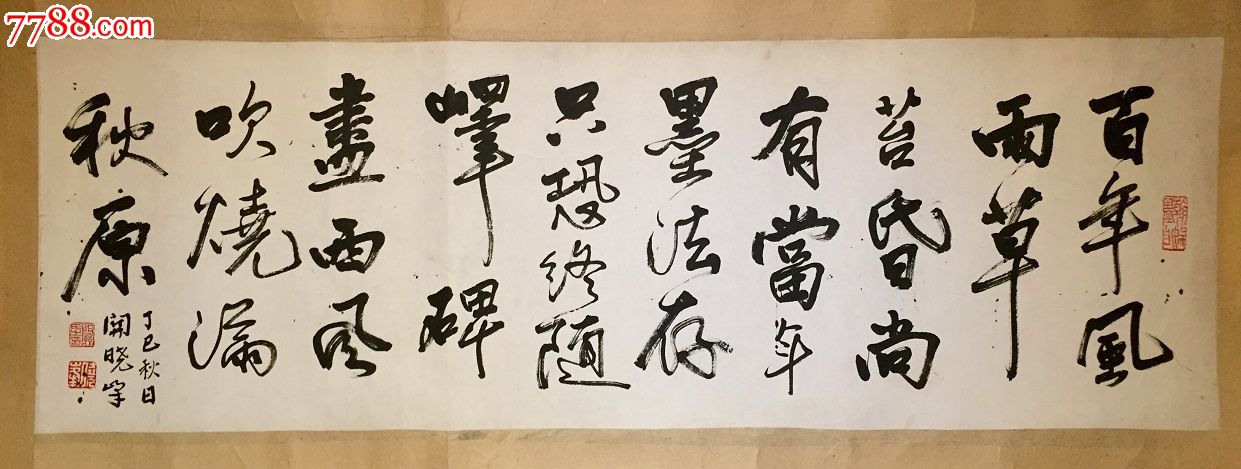 7788.com
百年風
雨草
苔昏尚
有當年
墨法存
只恐終随
嶧碑
盡西風
吹燒滿
秋原
丁巳秋日
晓峯